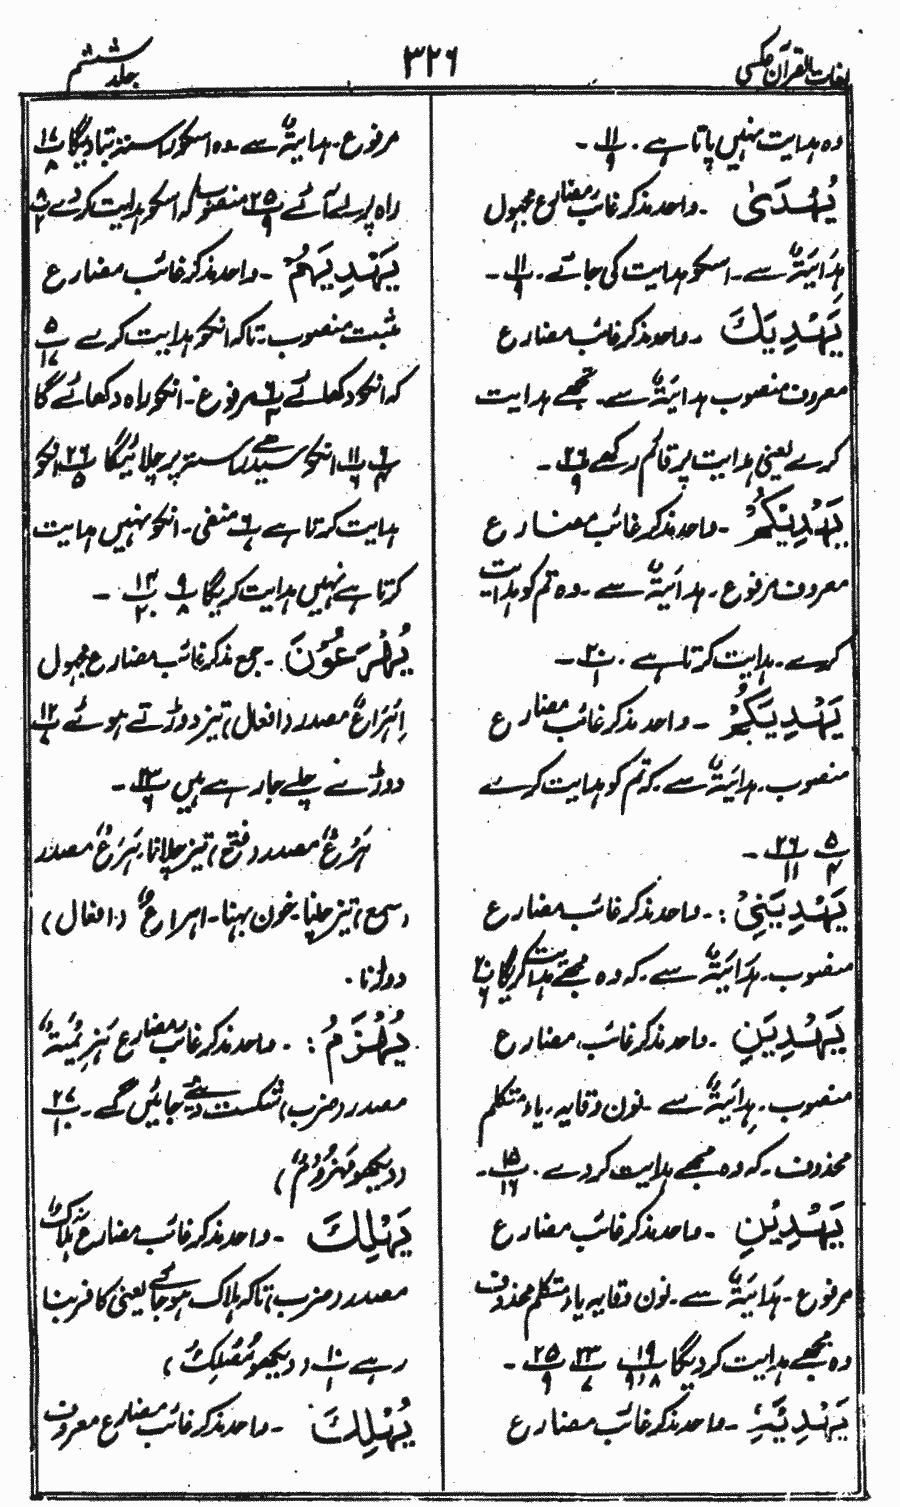 لغات القرآن عکسی
۳۲۶
جلد ششم
وہ ہدایت نہیں پاتا ہے۔ ۱۱/۹ -
یُهْدٰی ۔ واحد مذکر غائب مضارع مجہول
ہِدَایَۃٌ سے۔ اسکو ہدایت کی جائے۔ ۱۱/۹ -
یَهْدِیَكَ ۔ واحد مذکر غائب مضارع
معروف منصوب ہدایَۃٌ سے۔ تجھے ہدایت
کرے یعنی ہدایت پر قائم رکھے ۲۶/۹ -
یَهْدِیْكُمْ ۔ واحد مذکر غائب مضارع
معروف مرفوع۔ ہدایَۃٌ سے۔ وہ تم کو ہدایت
کرے۔ ہدایت کرتا ہے۔ ۲۰/۱ -
یَهْدِیَكُمْ ۔ واحد مذکر غائب مضارع
منصوب۔ ہدایَۃٌ سے۔ کہ تم کو ہدایت کرے
۵/۴ ۲۶/۱۱ -
یَهْدِیَنِیْ :۔ واحد مذکر غائب مضارع
منصوب۔ ہِدَایَۃٌ سے۔ کہ وہ مجھے ہدایت کریگا ۲۰/۶
یَهْدِیَنِ ۔ واحد مذکر غائب، مضارع
منصوب۔ ہِدایَۃٌ سے۔ نون وقایہ۔ یاء متکلم
محذوف۔ کہ وہ مجھے ہدایت کردے۔ ۱۵/۱۶ -
یَهْدِیْنِ ۔ واحد مذکر غائب مضارع
مرفوع۔ ہَدایَۃٌ سے۔ نون وقایہ یاء متکلم محذوف
وہ مجھے ہدایت کردیگا ۱۹/۹،۸ ۲۳/۷ ۲۵/۹ -
یَهْدِیَهٗ ۔ واحد مذکر غائب مضارع
مرفوع۔ ہدایَۃٌ سے۔ وہ اسکو راستہ بتادیگا ۱۷/۸
راہ پر لے آئے ۲۵/۹ منصوب کہ اسکو ہدایت کردے ۸/۲
یَهْدِیَهُمْ ۔ واحد مذکر غائب مضارع
مثبت منصوب۔ تاکہ انکو ہدایت کرے ۵/۱۷
کہ انکو دکھلائے ۶/۳ مرفوع۔ انکو راہ دکھائے گا
۶/۴ ۱۱/۶ انکو سیدھے راستہ پر چلائیگا ۲۶/۵ انکو
ہدایت کرتا ہے ۶ منفی۔ انکو نہیں ہدایت
کرتا ہے نہیں ہدایت کریگا ۹/۸ ۱۴/۲۰ -
یُهْرَعُوْنَ ۔ جمع مذکر غائب مضارع مجہول
اِهْرَاعٌ مصدر (افعال) تیز دوڑتے ہوئے ۱۲/۷
دوڑے چلے جارہے ہیں ۲۳/۶ -
ہَرَعٌ مصدر (فتح) تیز چلانا۔ ہَرَعٌ مصدر
(سمع) تیز چلنا۔ خون بہنا۔ اہراعٌ (افعال)
دوڑنا ۔
یُهْزَمُ :۔ واحد مذکر غائب مضارع ہَزِیْمَۃٌ
مصدر (ضرب) شکست دیئے جائیں گے۔ ۲۷/۱۰
(دیکھو مَهْزُوْمٌ)
یَهْلِكَ ۔ واحد مذکر غائب مضارع ہَلاکٌ
مصدر (ضرب) تاکہ ہلاک ہوجائے یعنی کافر بنا
رہے ۱۰/۱ (دیکھو مُهْلِكٌ)
یُهْلِكَ ۔ واحد مذکر غائب مضارع معروف